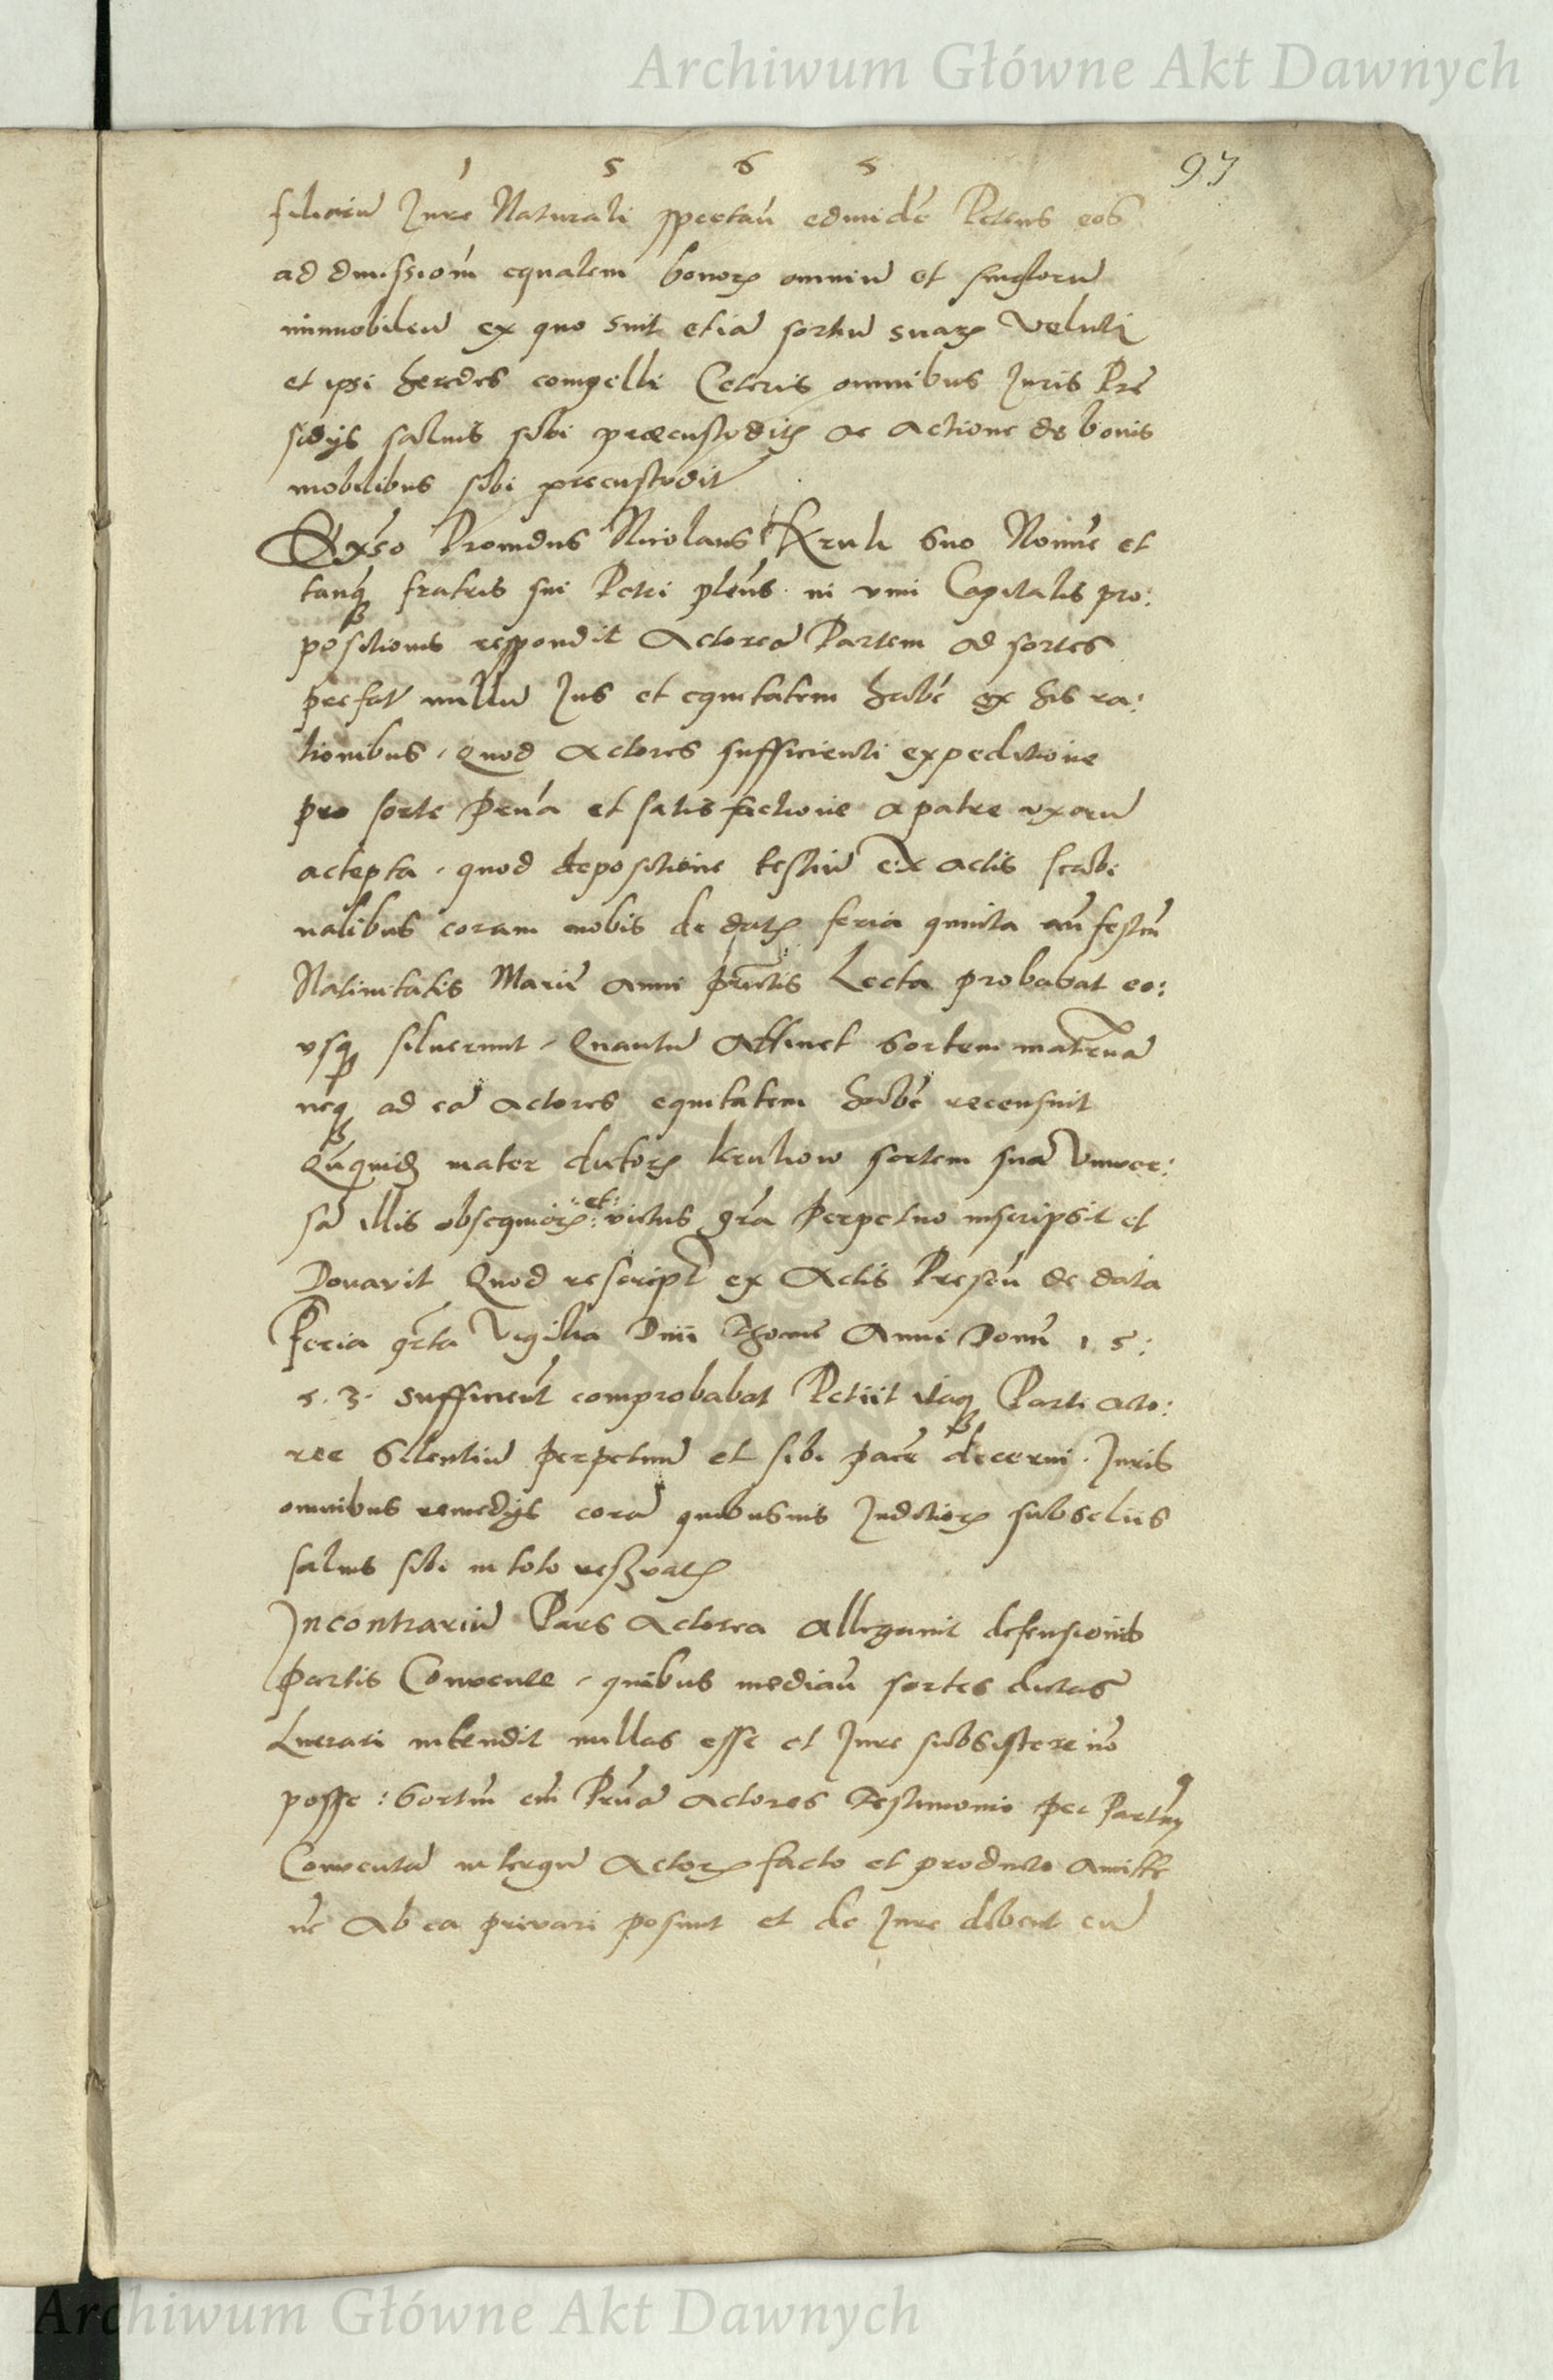 Archiwum Główne Akt Dawnych
1 5 6 5
97
filiarū Jure Naturali sppectań edmidē Petens eos
ad dmissionm equalem bonorꝝ omniū et singlorū
immobiliū ex quo sint etiā sortiū suarꝝ veluti
et ipsi heredes compelli Ceteris omnibus Juris Pre
sidijs salvis sibi præcustoditꝭ ac actione de bonis
mobilibus sibi precustodit
Providus Nicolaus Kruli suo Nomīe et
tanqꝫ fratris sui Petri pleńs in vim Capitalis pro:
positionis respondit Actoreā Partem ad sortes
prefat nullū Jus et equitatem habē ex his ra:
tionibus, Quod actores sufficienti expeditione
pro sorte Prńa et satisfactione a patre uxorū
accepta, quod depositione testiū ex actis scabi
nalibus coram nobis de datꝭ feria quinta añ festū
Nativitatis Marie anni prntis Lecta probabat eo:
usqꝫ siluerunt, Quantū Attinet sortem maternā
neqꝫ ad eā actores equitatem habē recensuit
Qnquidē mater dictorꝝ kruliow sortem suā Univer:
sā illis obsequiorꝝ et victus grā Perpetuo inscripsit et
Donavit Quod rescript ex Actis Preseń de data
Feria qrta Vigilia Divi Thome Anni Domī 1.5:
5.3. sufficient comprobabat Petiit itaqꝫ Parti acto:
ree Silentiū perpetuū et sibi pacē decerni. Juris
omnibus remedijs corā quibusvis Juditiorꝝ subseliis
salvis sibi in toto reservatꝭ
Incontrariū Pars Actorea allegavit defensionis
Partis Convente, quibus mediań sortes dictas
Lucrari intendit nullas esse et Jure subsistere nō
posse: sortem em Prnā actores Testimonio per Partem
Conventā in tergū Actorꝝ facto et producto amitte
nc Ab ea privari possunt et de Jure debent cū
Archiwum Główne Akt Dawnych